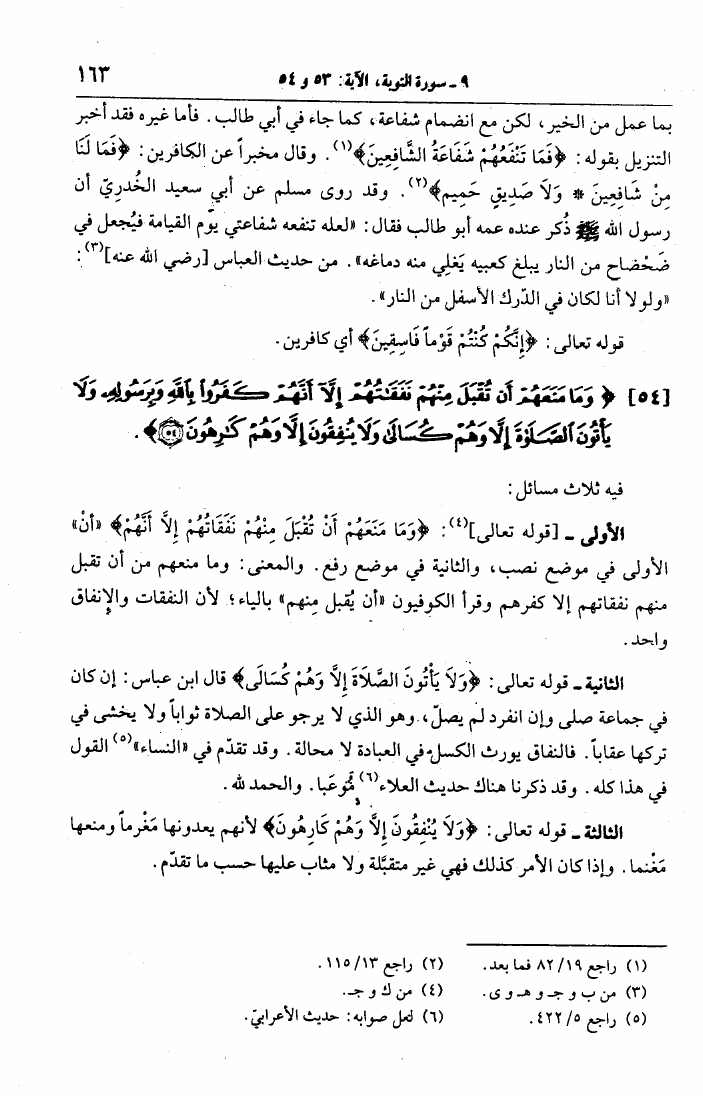 ٩ ـ سورة التوبة، الآية: ٥٣ و ٥٤
١٦٣
بما عمل من الخير، لكن مع انضمام شفاعة، كما جاء في أبي طالب. فأما غيره فقد أخبر
التنزيل بقوله: ﴿فَمَا تَنْفَعُهُمْ شَفَاعَةُ الشَّافِعِينَ﴾(١). وقال مخبراً عن الكافرين: ﴿فَمَا لَنَا
مِنْ شَافِعِينَ * وَلَا صَدِيقٍ حَمِيم﴾(٢). وقد روى مسلم عن أبي سعيد الخُدرِيّ أن
رسول الله ﷺ ذُكر عنده عمه أبو طالب فقال: «لعله تنفعه شفاعتي يوم القيامة فيُجعل في
ضَحْضاح من النار يبلغ كعبيه يَغلِي منه دماغه». من حديث العباس [رضي الله عنه](٣):
«ولولا أنا لكان في الدّرك الأسفل من النار».
قوله تعالى: ﴿إِنَّكُمْ كُنْتُمْ قَوْماً فَاسِقِينَ﴾ أي كافرين.
[٥٤] ﴿وَمَا مَنَعَهُمْ أَن تُقْبَلَ مِنْهُمْ نَفَقَٰتُهُمْ إِلَّآ أَنَّهُمْ كَفَرُوا۟ بِٱللَّهِ وَبِرَسُولِهِۦ وَلَا
يَأْتُونَ ٱلصَّلَوٰةَ إِلَّا وَهُمْ كُسَالَىٰ وَلَا يُنفِقُونَ إِلَّا وَهُمْ كَٰرِهُونَ ٥٤﴾.
فيه ثلاث مسائل:
الأولى ـ [قوله تعالى](٤): ﴿وَمَا مَنَعَهُمْ أَنْ تُقْبَلَ مِنْهُمْ نَفَقَاتُهُمْ إِلَّا أَنَّهُمْ﴾ «أنْ»
الأولى في موضع نصب، والثانية في موضع رفع. والمعنى: وما منعهم من أن تقبل
منهم نفقاتهم إلا كفرهم وقرأ الكوفيون «أن يُقبل مِنهم» بالياء؛ لأن النفقات والإنفاق
واحد.
الثانية ـ قوله تعالى: ﴿وَلَا يَأْتُونَ الصَّلَاةَ إِلَّا وَهُمْ كُسَالَى﴾ قال ابن عباس: إن كان
في جماعة صلى وإن انفرد لم يصلّ، وهو الذي لا يرجو على الصلاة ثواباً ولا يخشى في
تركها عقاباً. فالنفاق يورث الكسل في العبادة لا محالة. وقد تقدّم في «النساء»(٥) القول
في هذا كله. وقد ذكرنا هناك حديث العلاء(٦) مُوعَبا. والحمد لله.
الثالثة ـ قوله تعالى: ﴿وَلَا يُنْفِقُونَ إِلَّا وَهُمْ كَارِهُونَ﴾ لأنهم يعدونها مَغْرماً ومنعها
مَغْنما. وإذا كان الأمر كذلك فهي غير متقبَّلة ولا مثاب عليها حسب ما تقدّم.
(١) راجع ١٩/ ٨٢ فما بعد.
(٢) راجع ١٣/ ١١٥.
(٣) من ب و جـ و هـ و ى.
(٤) من ك و جـ.
(٥) راجع ٥/ ٤٢٢.
(٦) لعل صوابه: حديث الأعرابيّ.